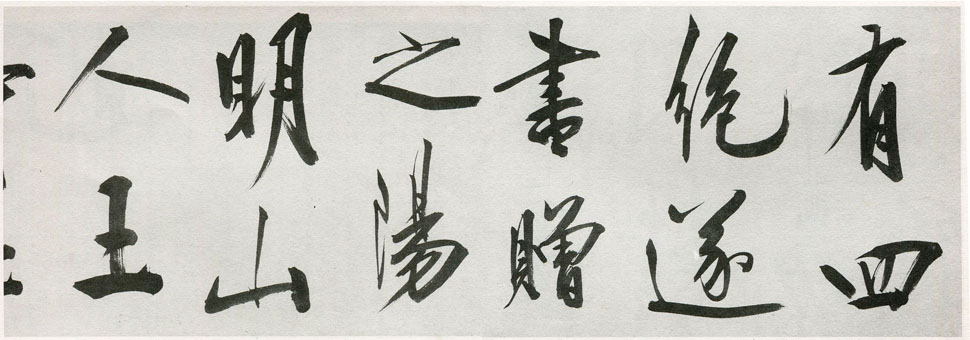 有四
絶遂
書贈
之陽
明山
人王